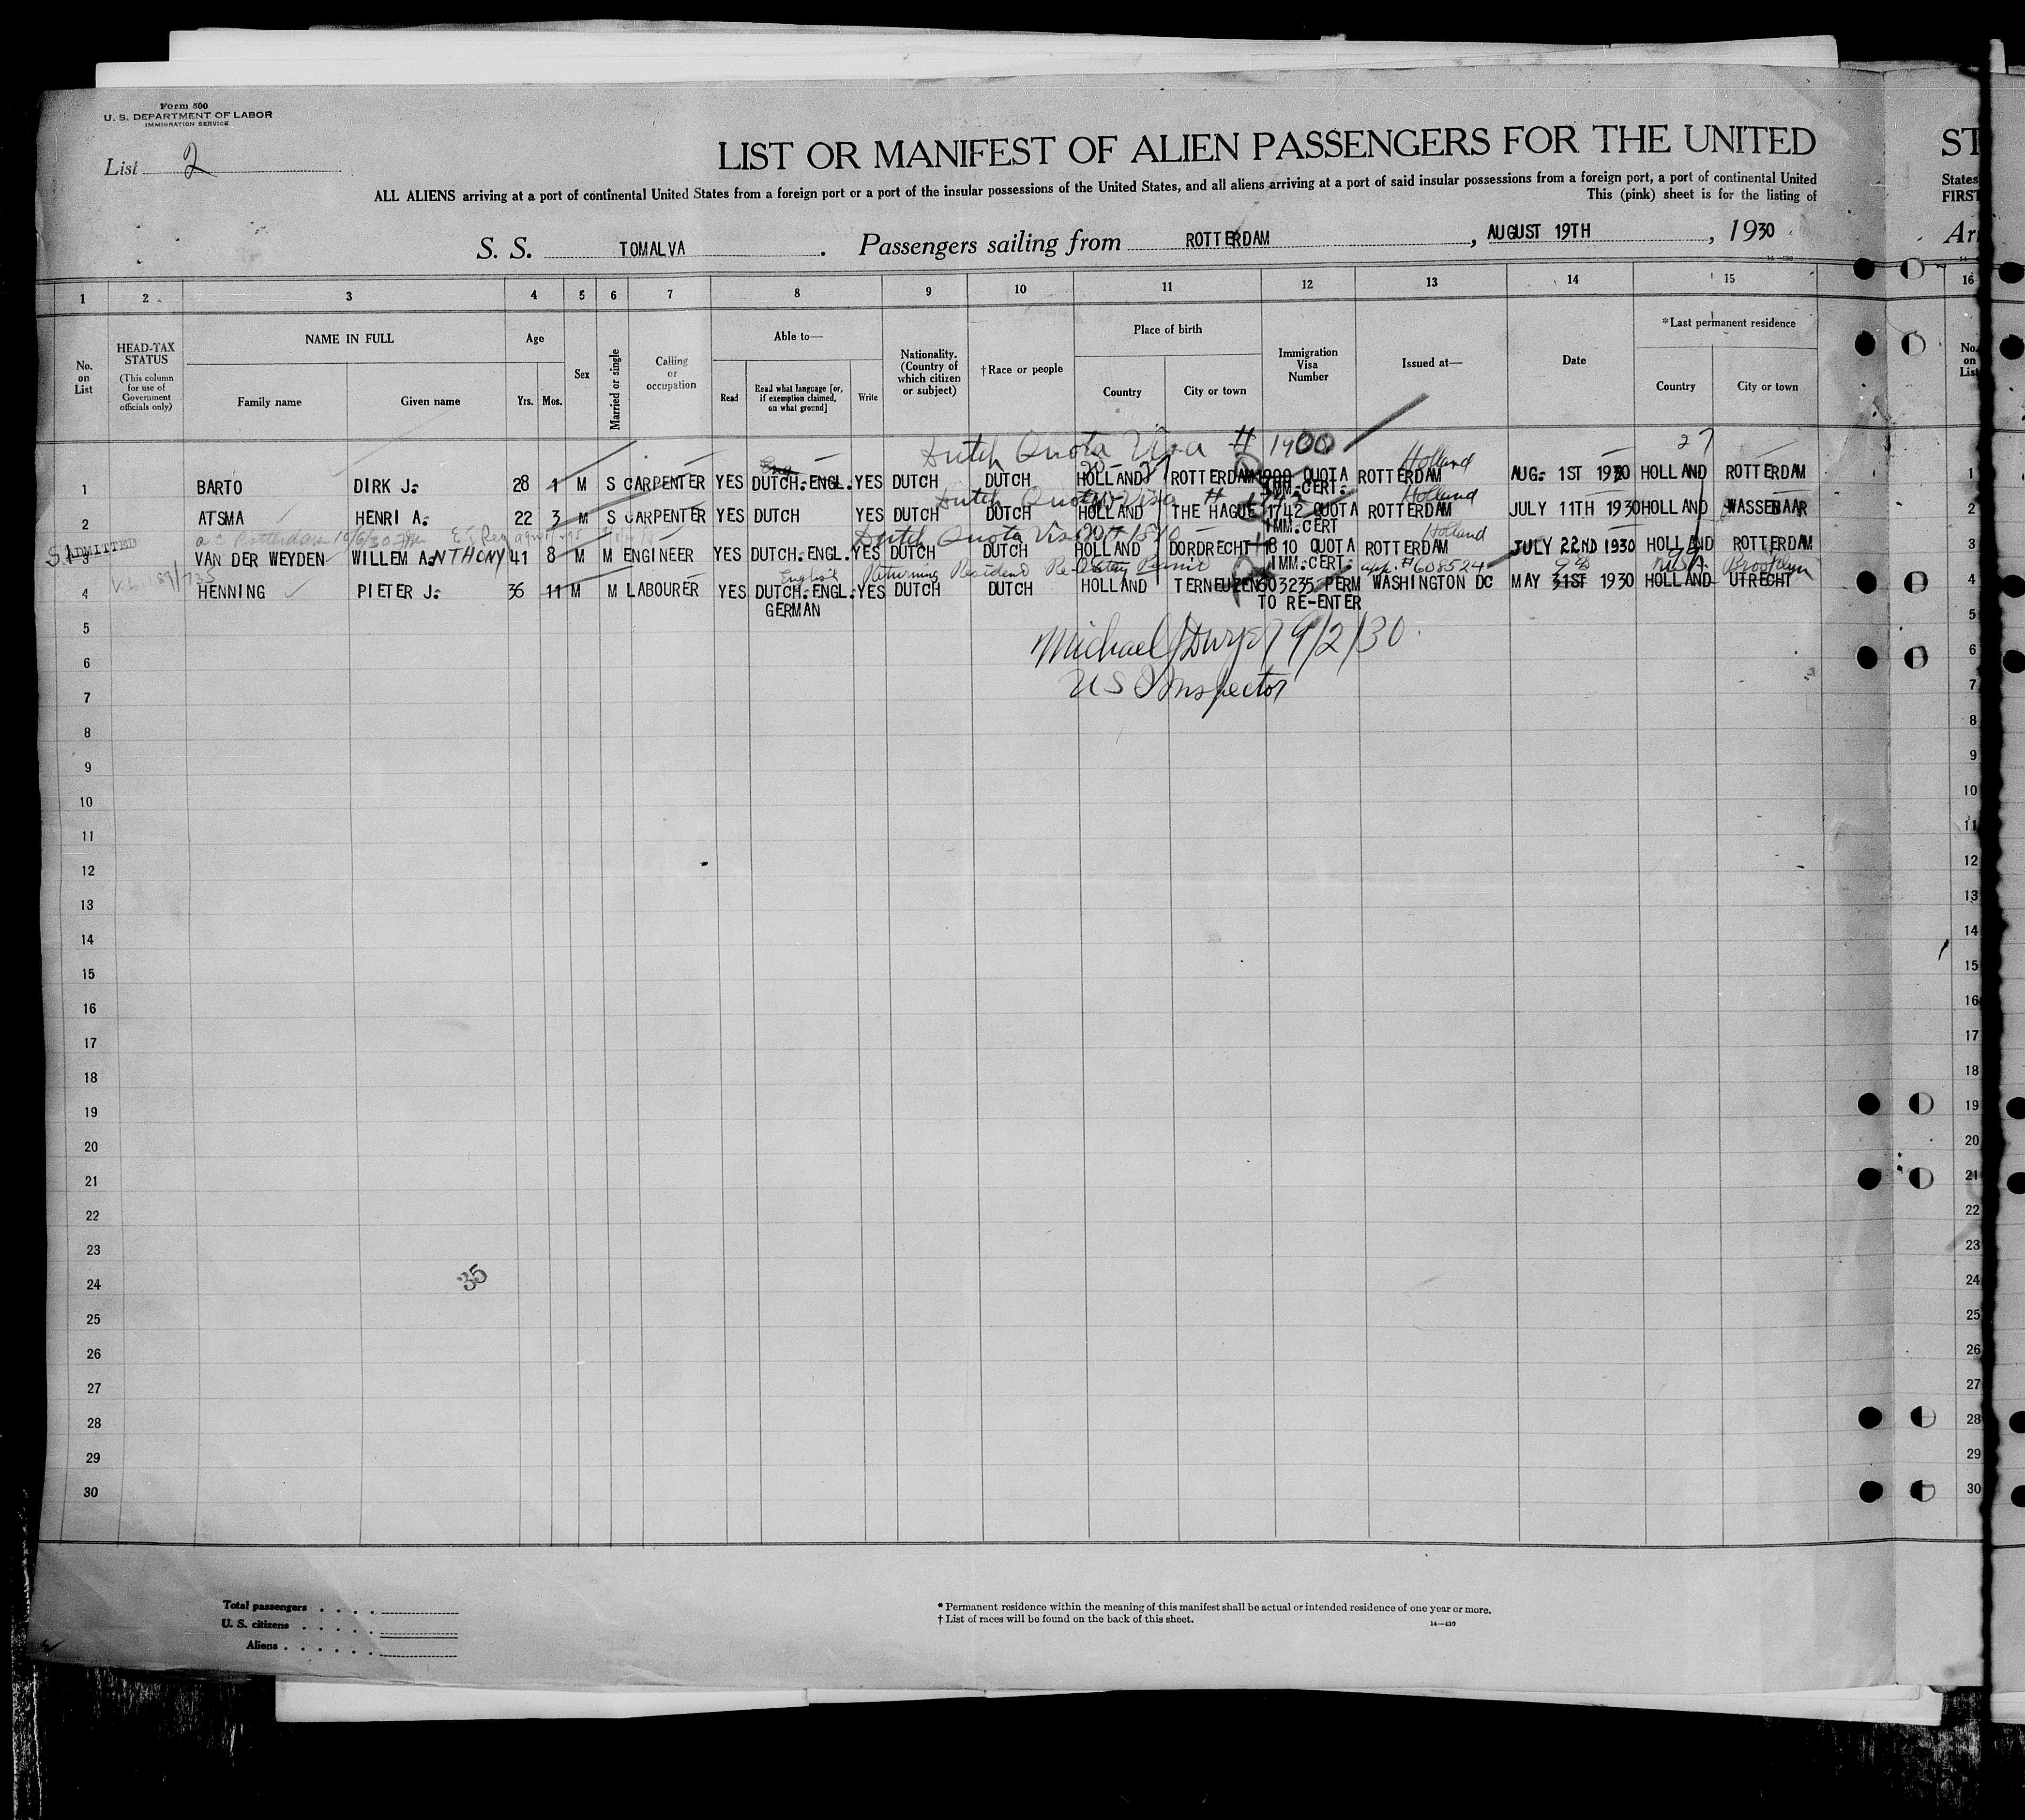 Form 500
U. S. DEPARTMENT OF LABOR
IMMIGRATION SERVICE
List 2
LIST OR MANIFEST OF ALIEN PASSENGERS FOR THE UNITED
ST
ALL ALIENS arriving at a port of continental United States from a foreign port or a port of the insular possessions of the United States, and all aliens arriving at a port of said insular possessions from a foreign port, a port of continental United
States
This (pink) sheet is for the listing of
FIRST
S. S. TOMALVA. Passengers sailing from ROTTERDAM, AUGUST 19TH, 1930
1 2 3 4 5 6 7 8 9 10 11 12 13 14 15 16
No. on List
HEAD-TAX STATUS (This column for use of Government officials only)
NAME IN FULL
Family name Given name
Age
Yrs. Mos.
Sex
Married or single
Calling or occupation
Able to—
Read Read what language [or, if exemption claimed, on what ground] Write
Nationality. (Country of which citizen or subject)
†Race or people
Place of birth
Country City or town
Immigration Visa Number
Issued at—
Date
*Last permanent residence
Country City or town
No. on List
Dutch Quota Visa # 1900 27
Eng Holland
1 BARTO DIRK J. 28 1 M S CARPENTER YES DUTCH. ENGL. YES DUTCH DUTCH HOLLAND ROTTERDAM 1900 QUOTA ROTTERDAM AUG. 1ST 1930 HOLLAND ROTTERDAM 1
IMM. CERT.
Dutch Quota Visa # 1742 Holland
2 ATSMA HENRI A. 22 3 M S CARPENTER YES DUTCH YES DUTCH DUTCH HOLLAND THE HAGUE 1742 QUOTA ROTTERDAM JULY 11TH 1930 HOLLAND WASSENAAR 2
IMM. CERT
Dutch Quota Visa # 1810 Holland
ADMITTED
3 VAN DER WEYDEN WILLEM ANTHONY 41 8 M M ENGINEER YES DUTCH. ENGL. YES DUTCH DUTCH HOLLAND DORDRECHT 1810 QUOTA ROTTERDAM JULY 22ND 1930 HOLLAND ROTTERDAM 3
IMM. CERT.
English Returning Resident Re-Entry Permit app. # 608524 USA Brooklyn
4 HENNING PIETER J. 36 11 M M LABOURER YES DUTCH. ENGL. YES DUTCH DUTCH HOLLAND TERNEUZEN 603235 PERM WASHINGTON DC MAY 31ST 1930 HOLLAND UTRECHT 4
GERMAN TO RE-ENTER
5 5
Michael Dwyer 9/2/30
6 6
US Inspector
7 7
8 8
9 9
10 10
11 11
12 12
13 13
14 14
15 15
16 16
17 17
18 18
19 19
20 20
21 21
22 22
23 23
35
24 24
25 25
26 26
27 27
28 28
29 29
30 30
Total passengers
U. S. citizens
Aliens
* Permanent residence within the meaning of this manifest shall be actual or intended residence of one year or more.
† List of races will be found on the back of this sheet.
14—430